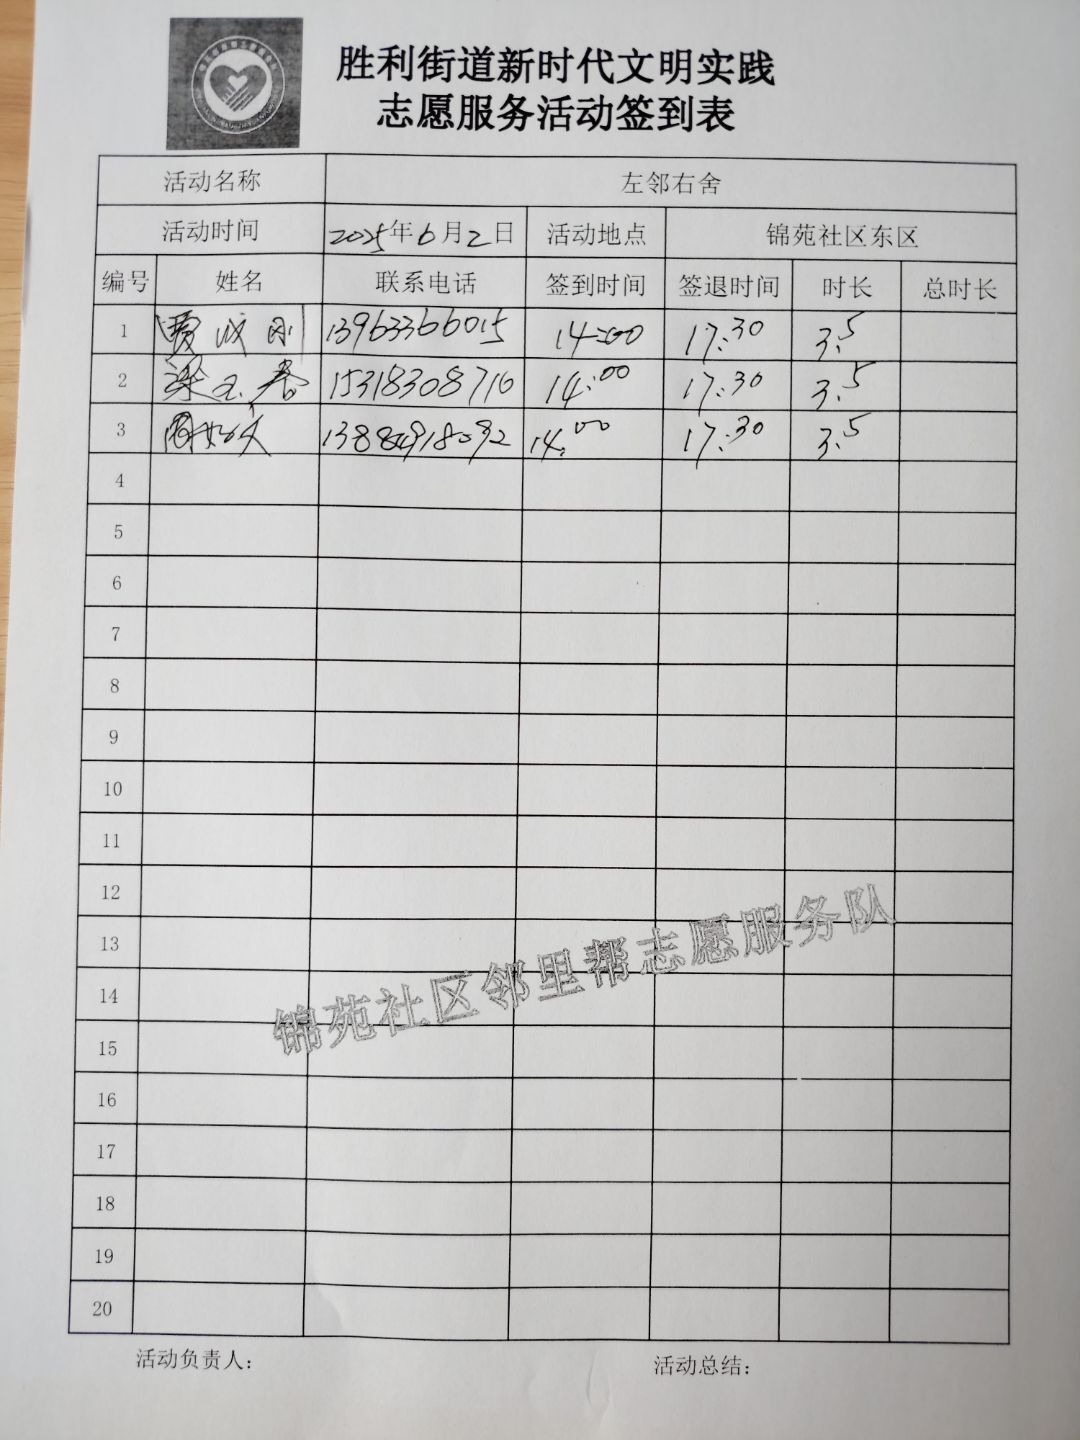 胜利街道新时代文明实践
志愿服务活动签到表
活动名称 左邻右舍
活动时间 2025年6月2日 活动地点 锦苑社区东区
编号 姓名 联系电话 签到时间 签退时间 时长 总时长
1 刚 13963366015 14:00 17:30 3.5
2 梁玉春 15318308716 14:00 17:30 3.5
3 周 文 14:00 17:30 3.5
4
5
6
7
8
9
10
11
12
13
14
15
16
17
18
19
20
锦苑社区邻里帮志愿服务队
活动负责人: 活动总结: